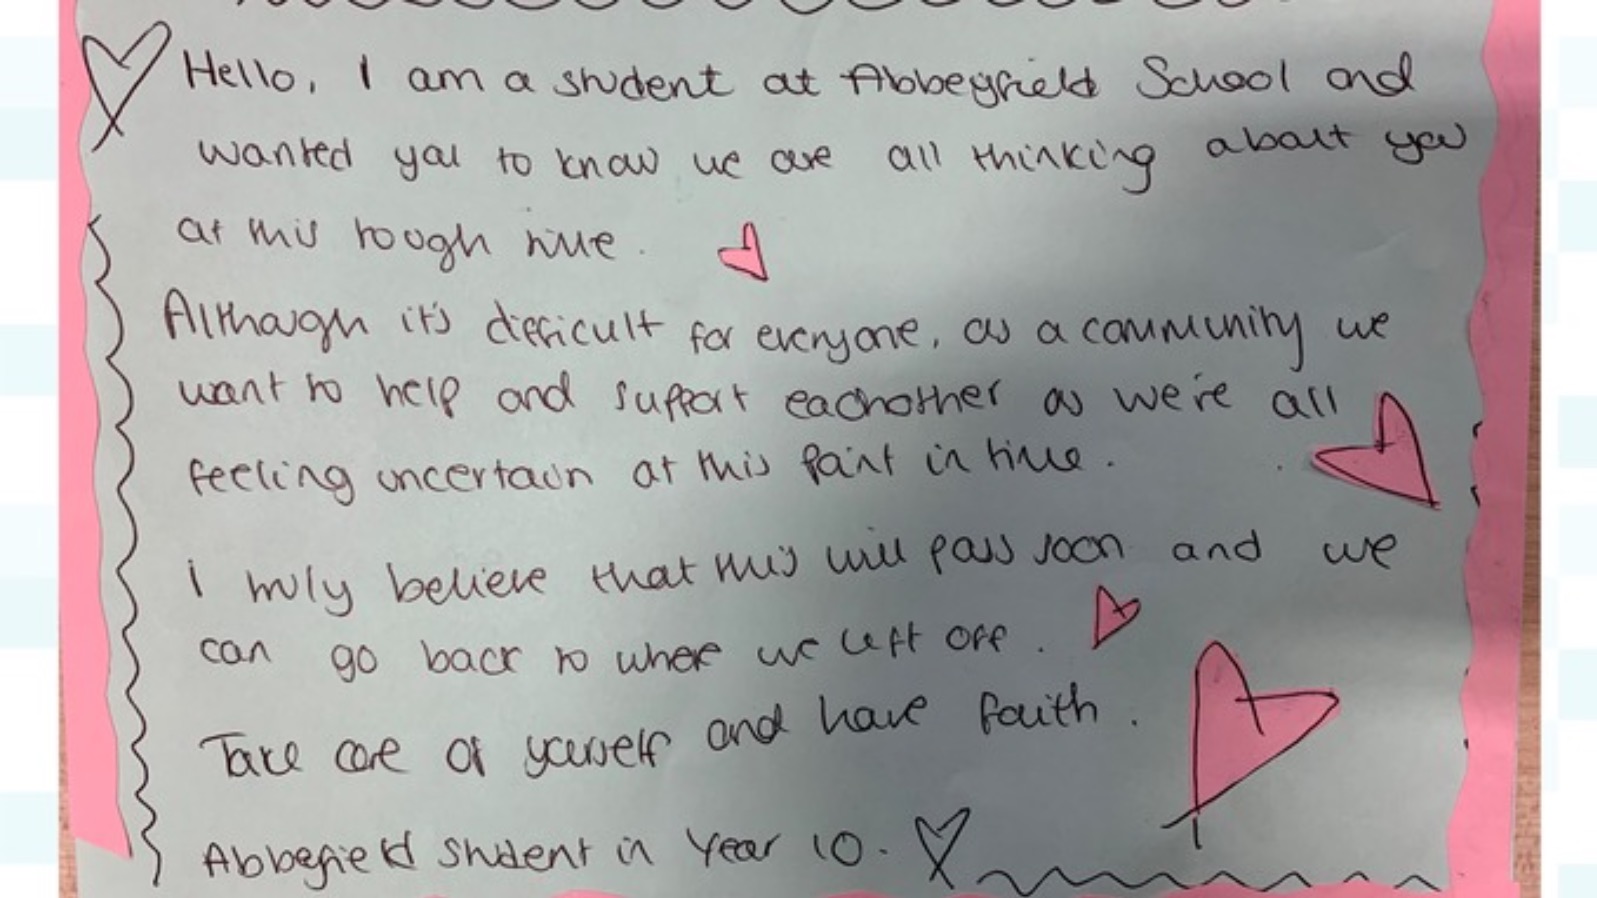 Hello, I am a student at Abbeyfield School and
wanted you to know we are all thinking about you
at this rough time.
Although it's difficult for everyone, as a community we
want to help and support eachother as we're all
feeling uncertain at this point in time.
I truly believe that this will pass soon and we
can go back to where we left off.
Take care of yourself and have faith.
Abbefield student in Year 10.